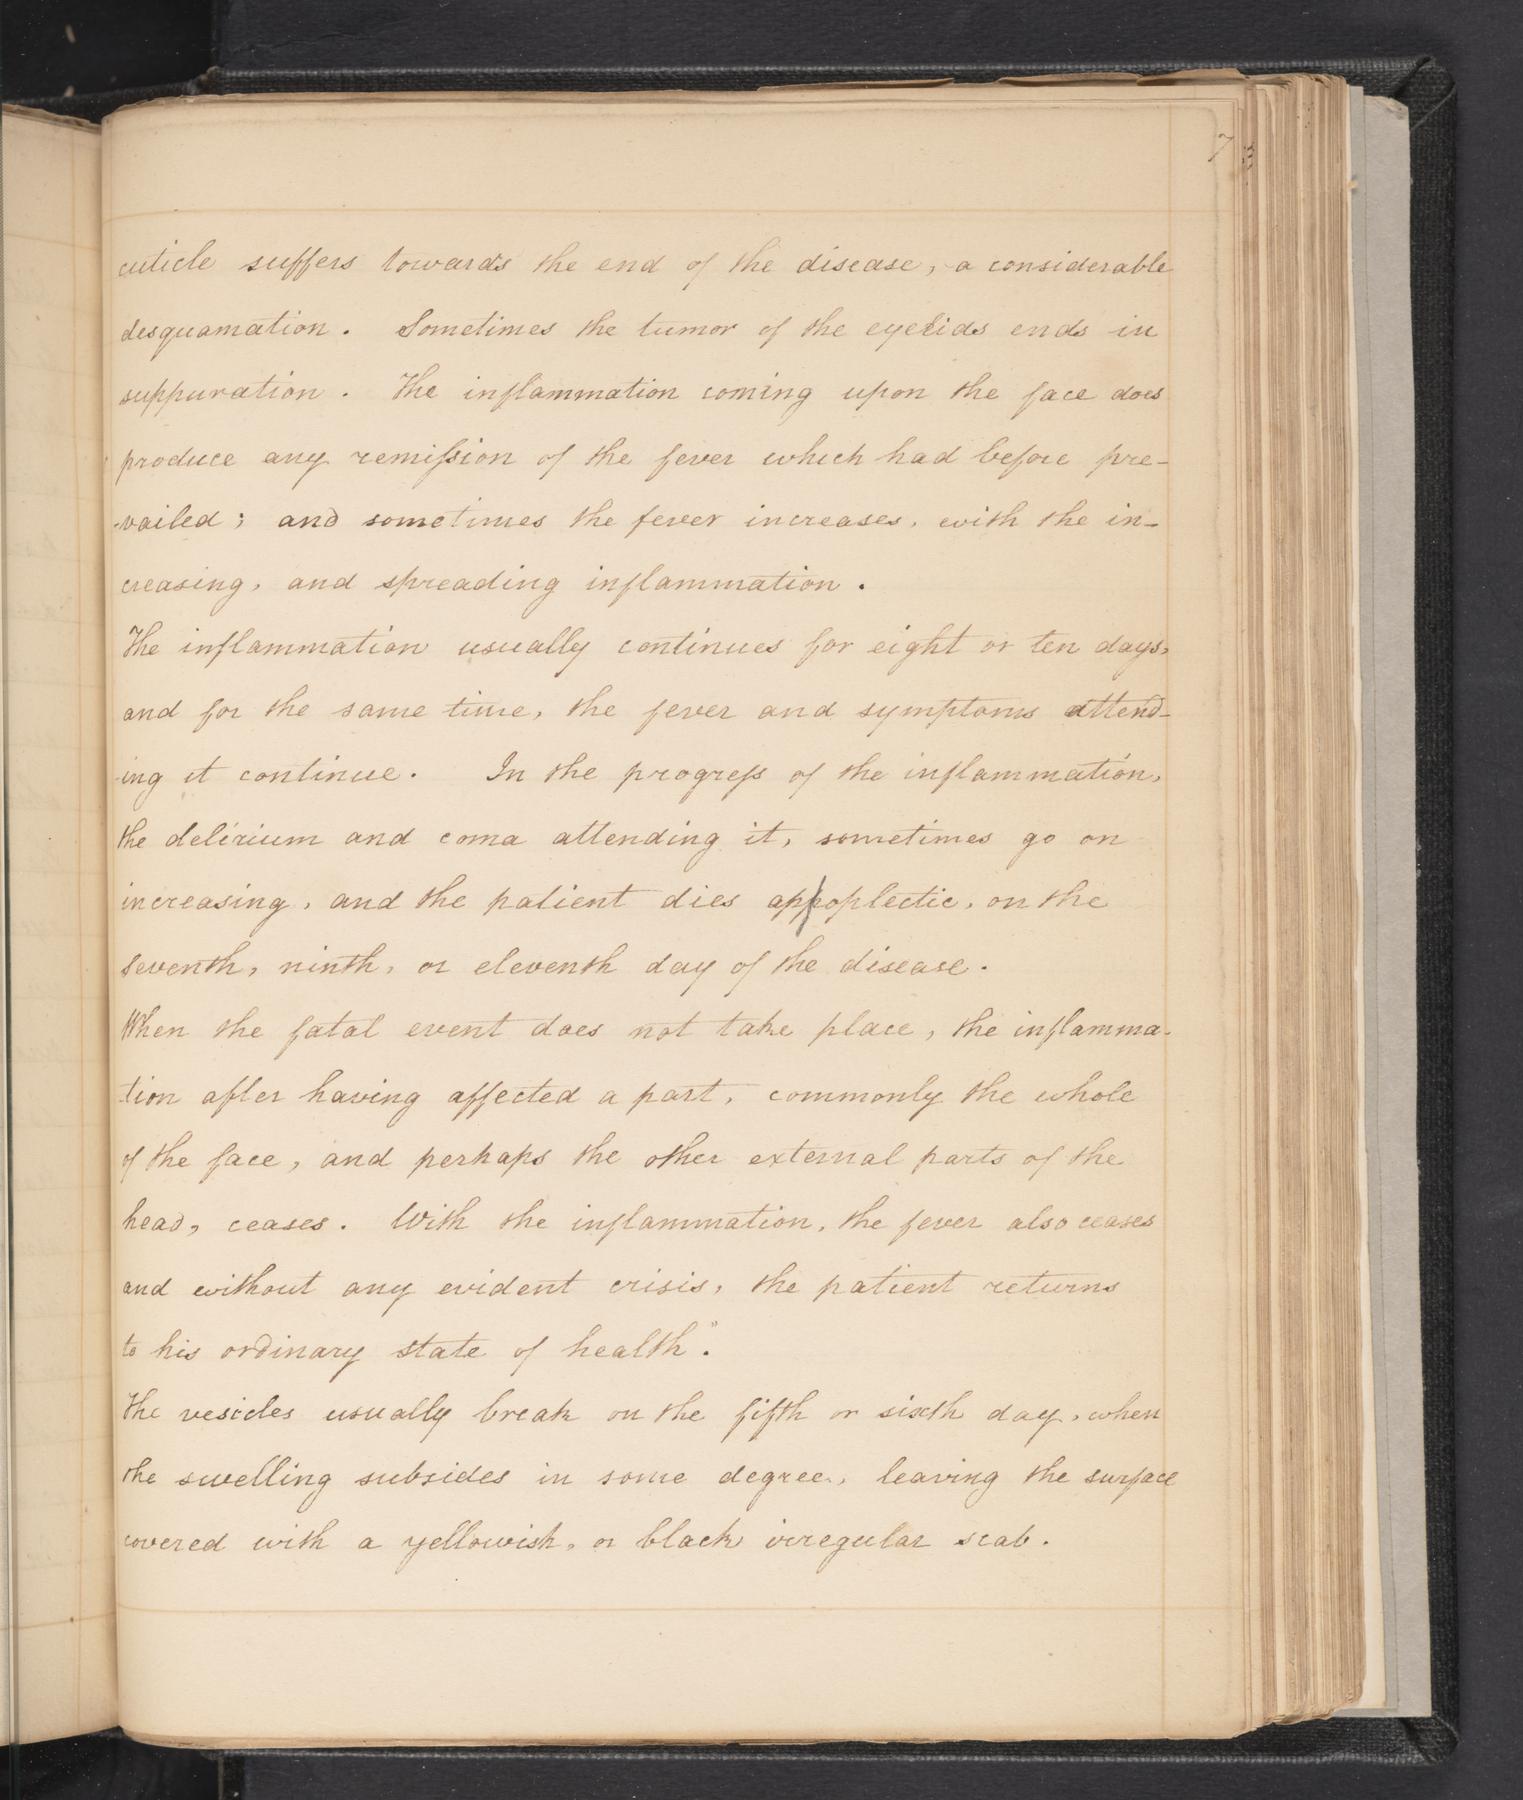 7
cuticle suffers towards the end of the disease, a considerable
desquamation. Sometimes the tumor of the eyelids ends in
suppuration. The inflammation coming upon the face does
produce any remission of the fever which had before pre-
-vailed; and sometimes the fever increases, with the in-
creasing, and spreading inflammation.
The inflammation usually continues for eight or ten days,
and for the same time, the fever and symptoms attend-
-ing it continue. In the progress of the inflammation,
the delirium and coma attending it, sometimes go on
increasing, and the patient dies appoplectic, on the
seventh, ninth, or eleventh day of the disease.
When the fatal event does not take place, the inflamma-
-tion after having affected a part, commonly the whole
of the face, and perhaps the other external parts of the
head, ceases. With the inflammation, the fever also ceases
and without any evident crisis, the patient returns
to his ordinary state of health".
The vesicles usually break on the fifth or sixth day, when
the swelling subsides in some degree, leaving the surface
covered with a yellowish, or black irregular scab.